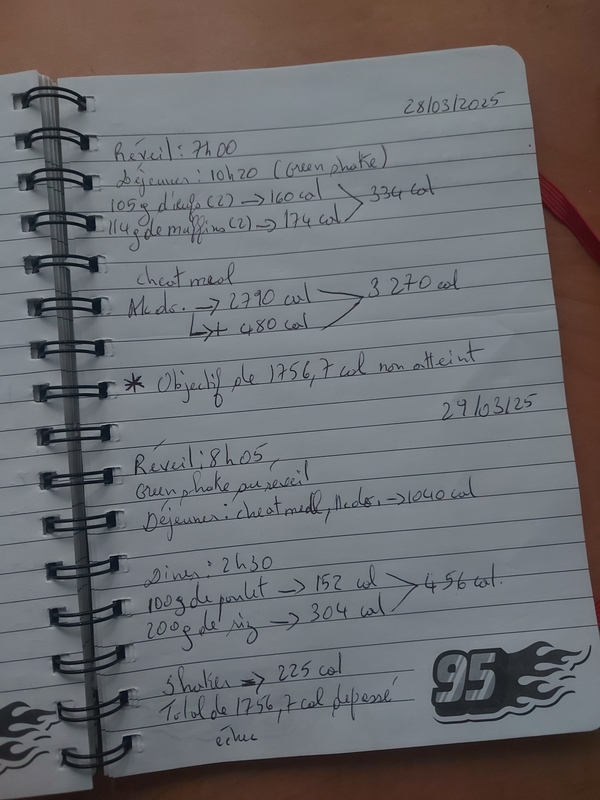 28/03/2025
Réveil : 7h00
Déjeuner : 10h20 (Green shake)
105g d'œufs (2) → 160 cal
114g de muffins (2) → 174 cal > 334 cal
cheat meal
Mcdo. → 2790 cal
↳+ 480 cal > 3 270 cal
* Objectif de 1756,7 cal non atteint
29/03/25
Réveil : 8h05
Green shake au réveil
Déjeuner : cheat meal, Mcdo. → 1040 cal
Diner : 2h30
100g de poulet → 152 cal
200g de riz → 304 cal > 456 cal.
Shaker → 225 cal
Total de 1756,7 cal dépassé
échec
95